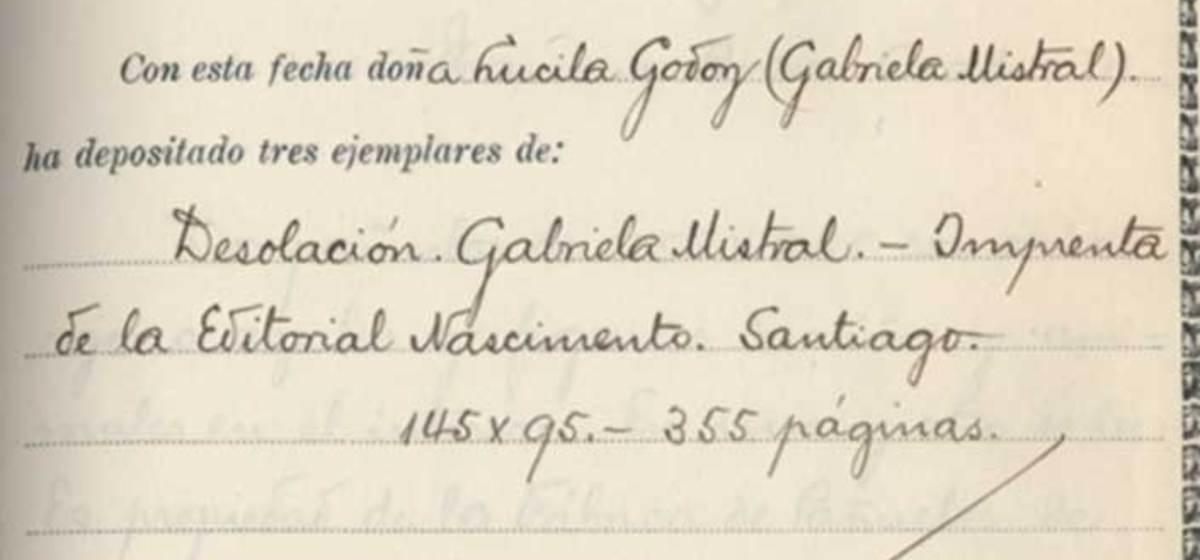 Con esta fecha doña Lucila Godoy (Gabriela Mistral).
ha depositado tres ejemplares de:
Desolación. Gabriela Mistral. – Imprenta
de la Editorial Nascimento. Santiago.–
145 x 95.– 355 páginas.